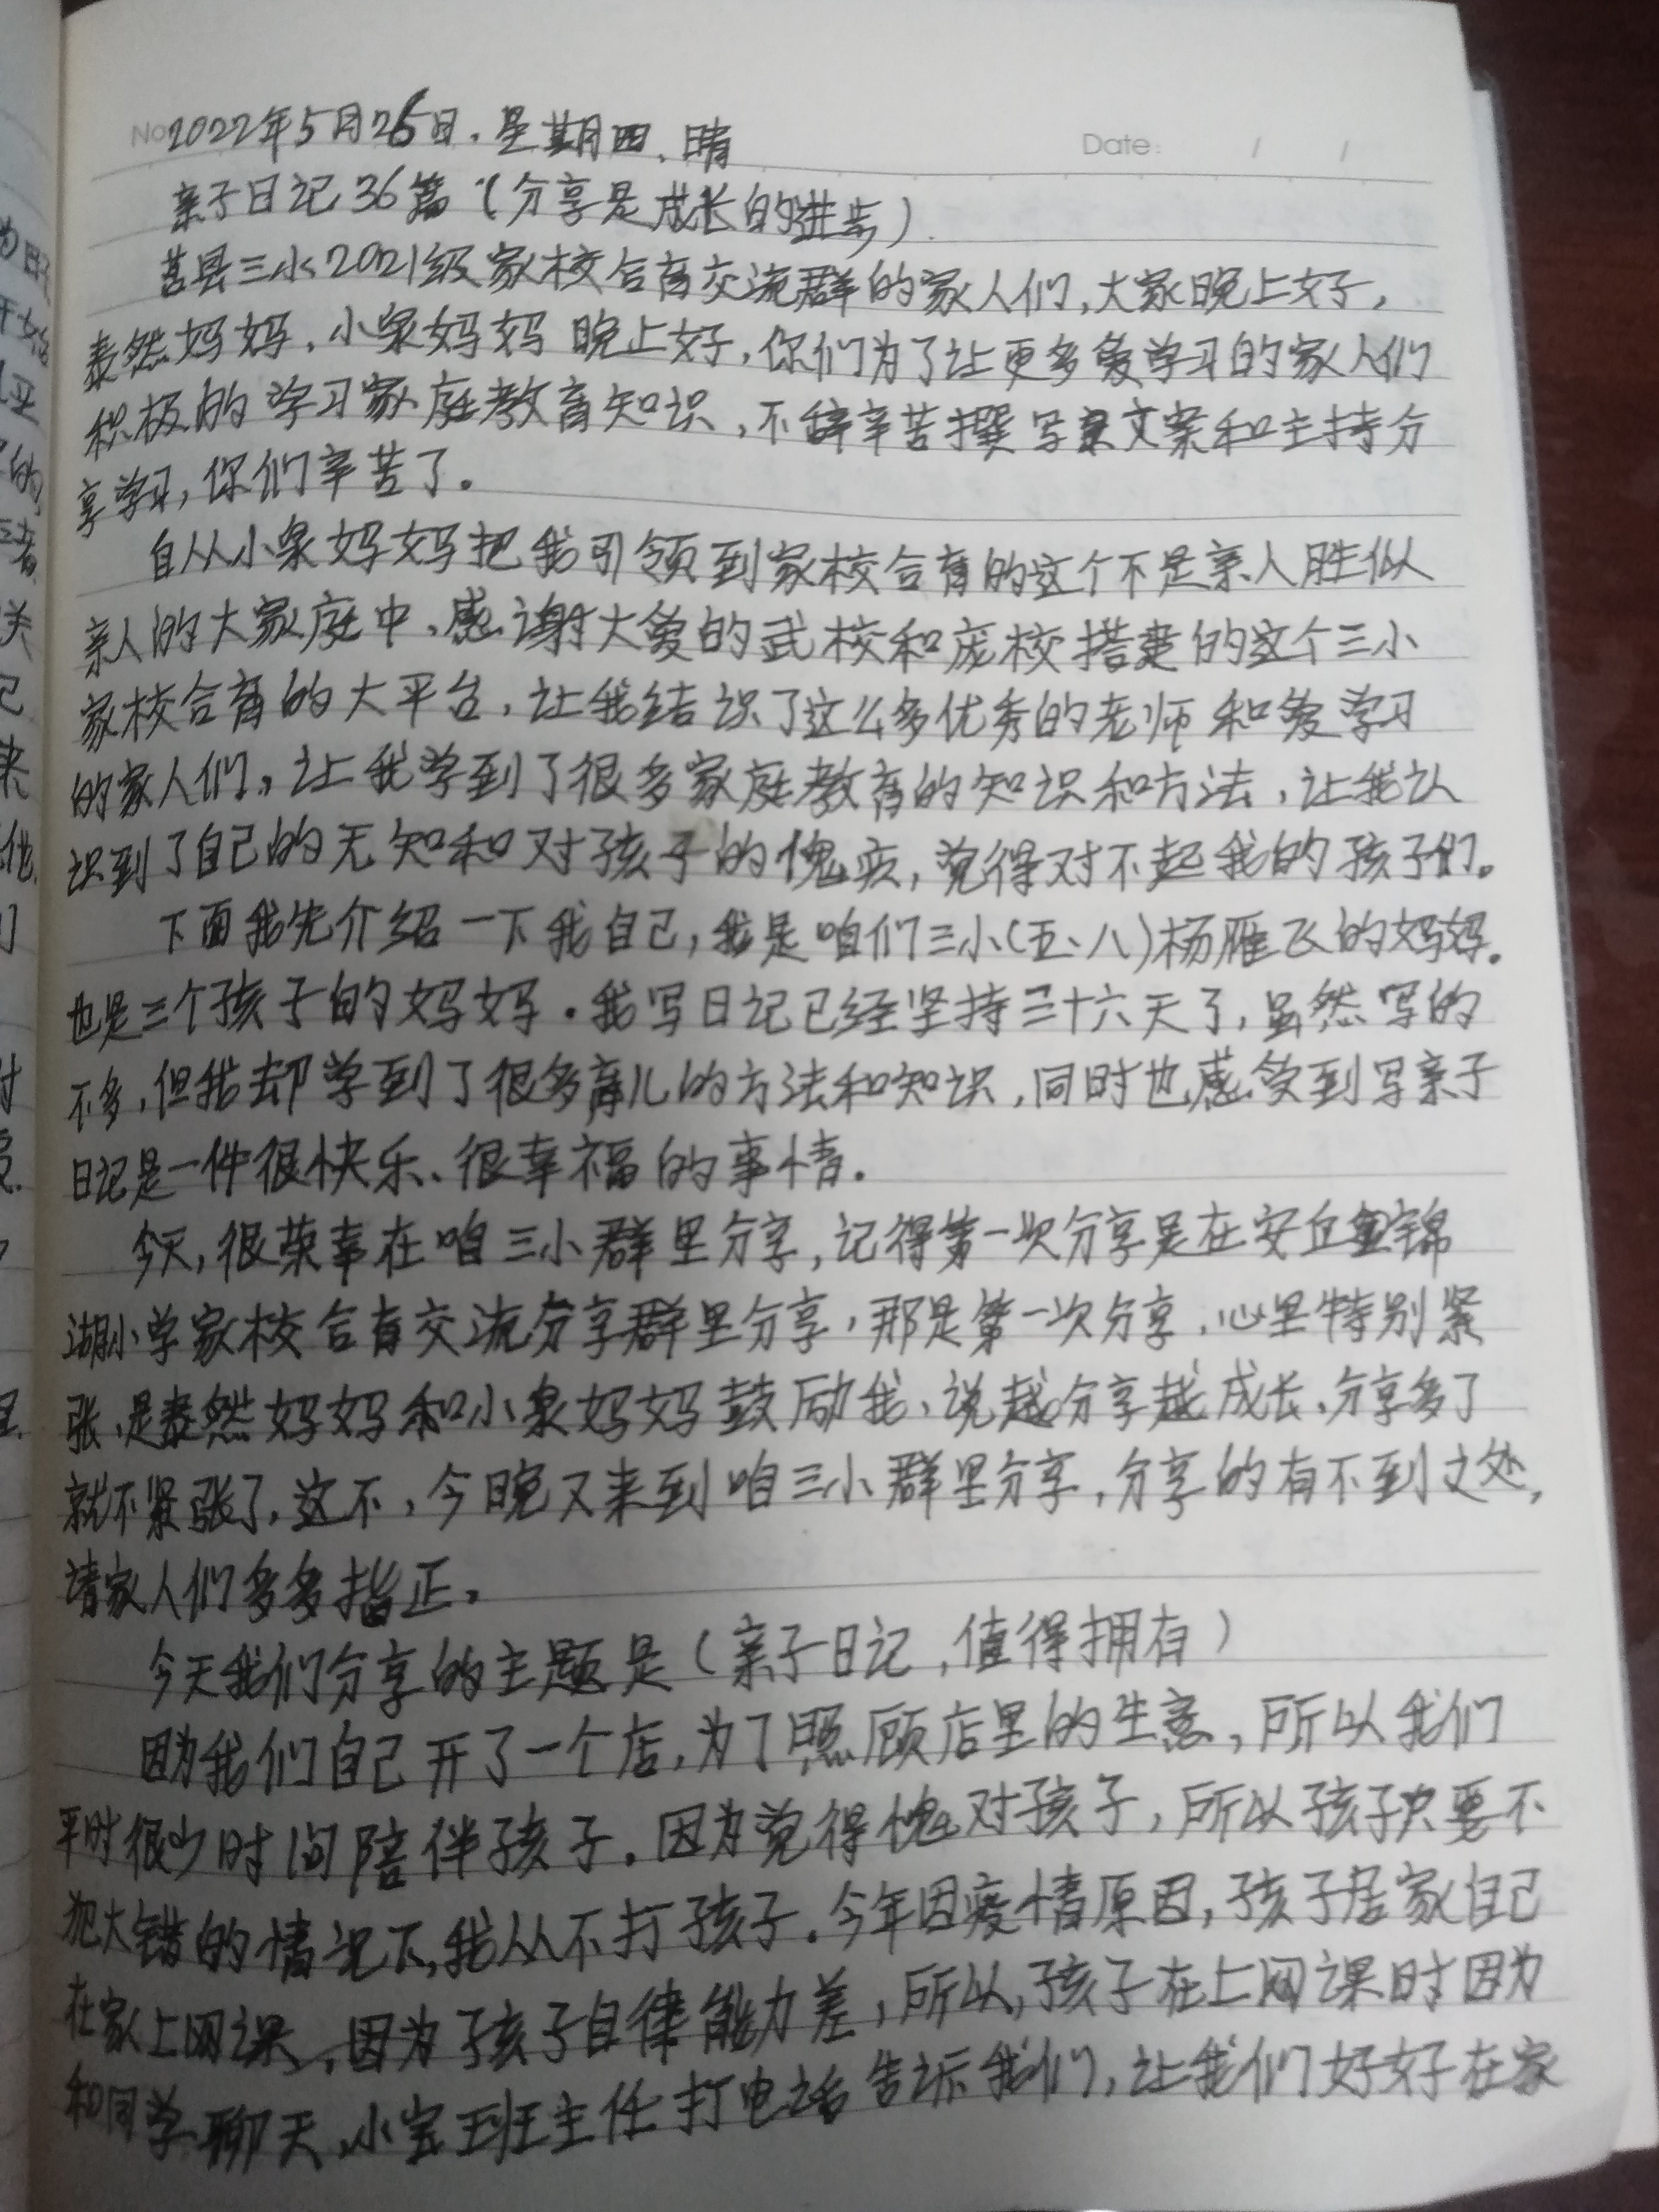 No 2022年5月26日.星期四、晴
Date: / /
亲子日记36篇(分享是成长的进步)
莒县三小2021级家校合育交流群的家人们,大家晚上好,
泰然妈妈、小泉妈妈晚上好,你们为了让更多爱学习的家人们
积极的学习家庭教育知识,不辞辛苦撰写文案和主持分
享学习,你们辛苦了。
自从小泉妈妈把我引领到家校合育的这个不是亲人胜似
亲人的大家庭中,感谢大爱的武校和庞校搭建的这个三小
家校合育的大平台,让我结识了这么多优秀的老师和爱学习
的家人们,让我学到了很多家庭教育的知识和方法,让我认
识到了自己的无知和对孩子的愧疚,觉得对不起我的孩子们。
下面我先介绍一下我自己,我是咱们三小(五、八)杨雁飞的妈妈。
也是三个孩子的妈妈.我写日记已经坚持三十六天了,虽然写的
不多,但我却学到了很多育儿的方法和知识,同时也感受到写亲子
日记是一件很快乐、很幸福的事情.
今天,很荣幸在咱三小群里分享,记得第一次分享是在安丘锦
湖小学家校合育交流分享群里分享,那是第一次分享,心里特别紧
张,是泰然妈妈和小泉妈妈鼓励我,说越分享越成长,分享多了
就不紧张了,这不,今晚又来到咱三小群里分享,分享的有不到之处,
请家人们多多指正。
今天我们分享的主题是(亲子日记,值得拥有)
因为我们自己开了一个店,为了照顾店里的生意,所以我们
平时很少时间陪伴孩子.因为觉得愧对孩子,所以孩子只要不
犯大错的情况下,我从不打孩子.今年因疫情原因,孩子居家自己
在家上网课,因为孩子自律能力差,所以,孩子在上网课时因为
和同学聊天,小宝班主任打电话告诉我们,让我们好好在家